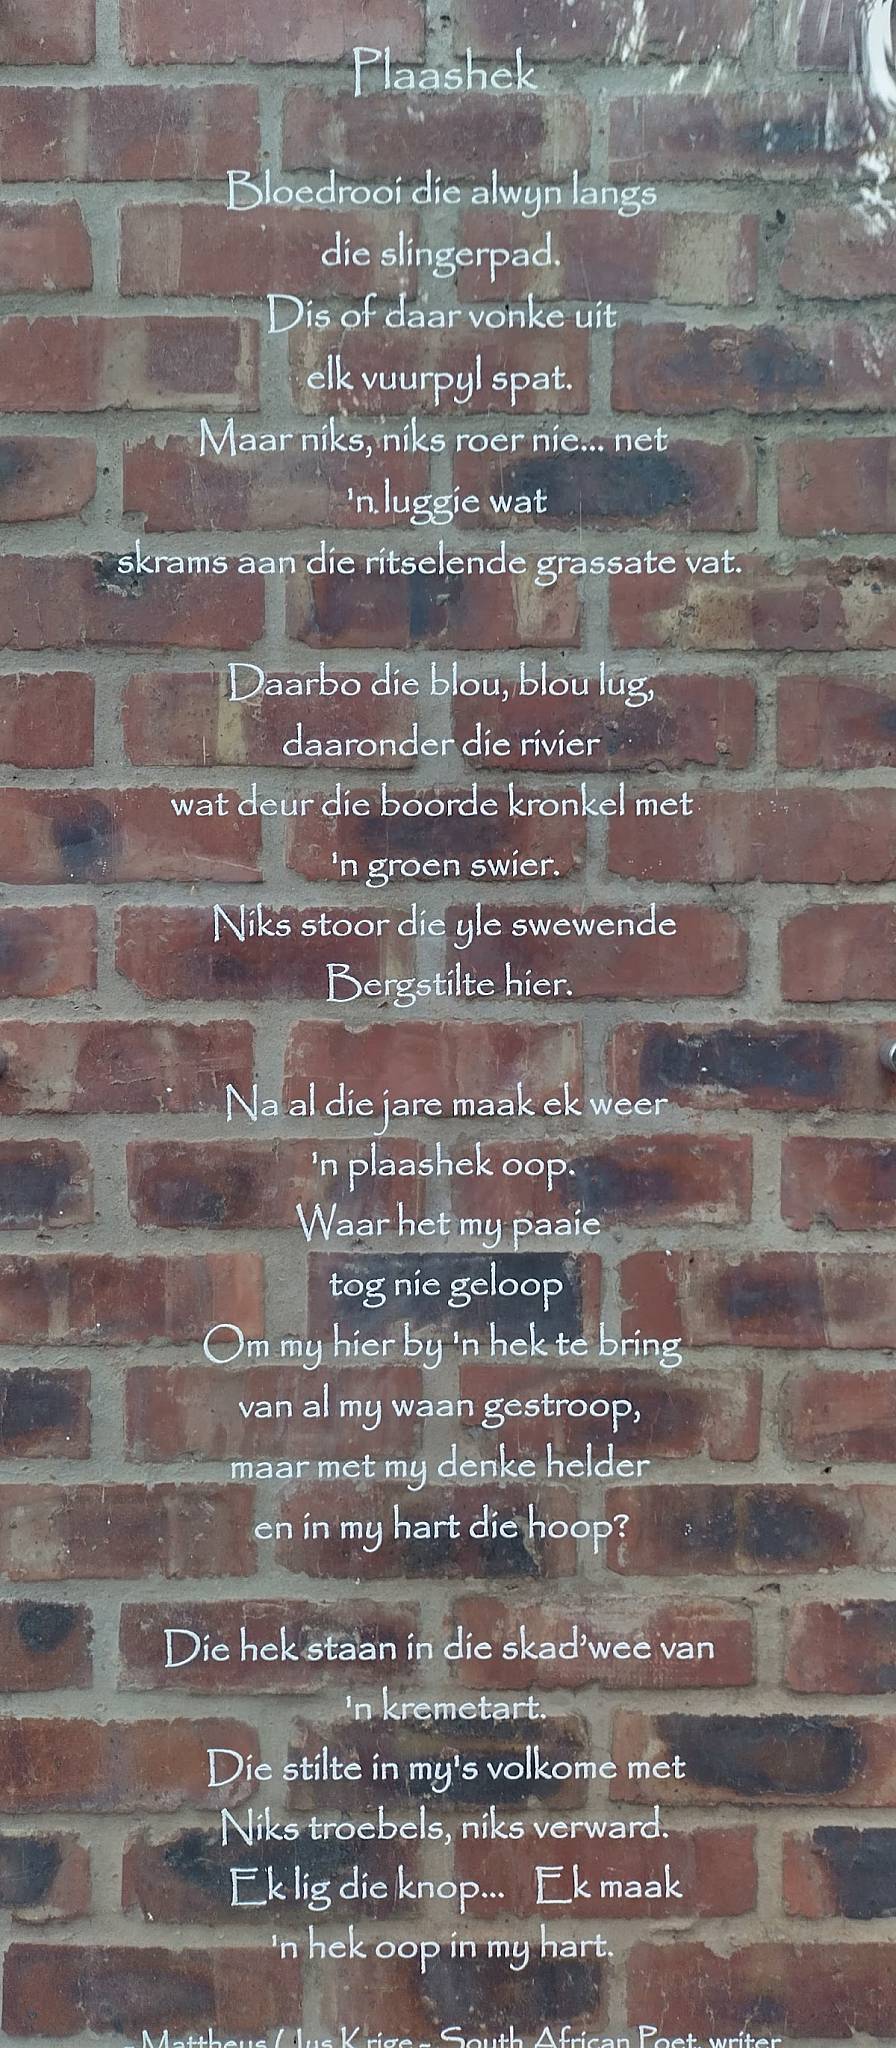 Plaashek
Bloedrooi die alwyn langs
die slingerpad.
Dis of daar vonke uit
elk vuurpyl spat.
Maar niks, niks roer nie... net
'n luggie wat
skrams aan die ritselende grassate vat.
Daarbo die blou, blou lug,
daaronder die rivier
wat deur die boorde kronkel met
'n groen swier.
Niks stoor die yle swewende
Bergstilte hier.
Na al die jare maak ek weer
'n plaashek oop.
Waar het my paaie
tog nie geloop
Om my hier by 'n hek te bring
van al my waan gestroop,
maar met my denke helder
en in my hart die hoop?
Die hek staan in die skad'wee van
'n kremetart.
Die stilte in my's volkome met
Niks troebels, niks verward.
Ek lig die knop... Ek maak
'n hek oop in my hart.
- Mattheus Krige - South African Poet, writer